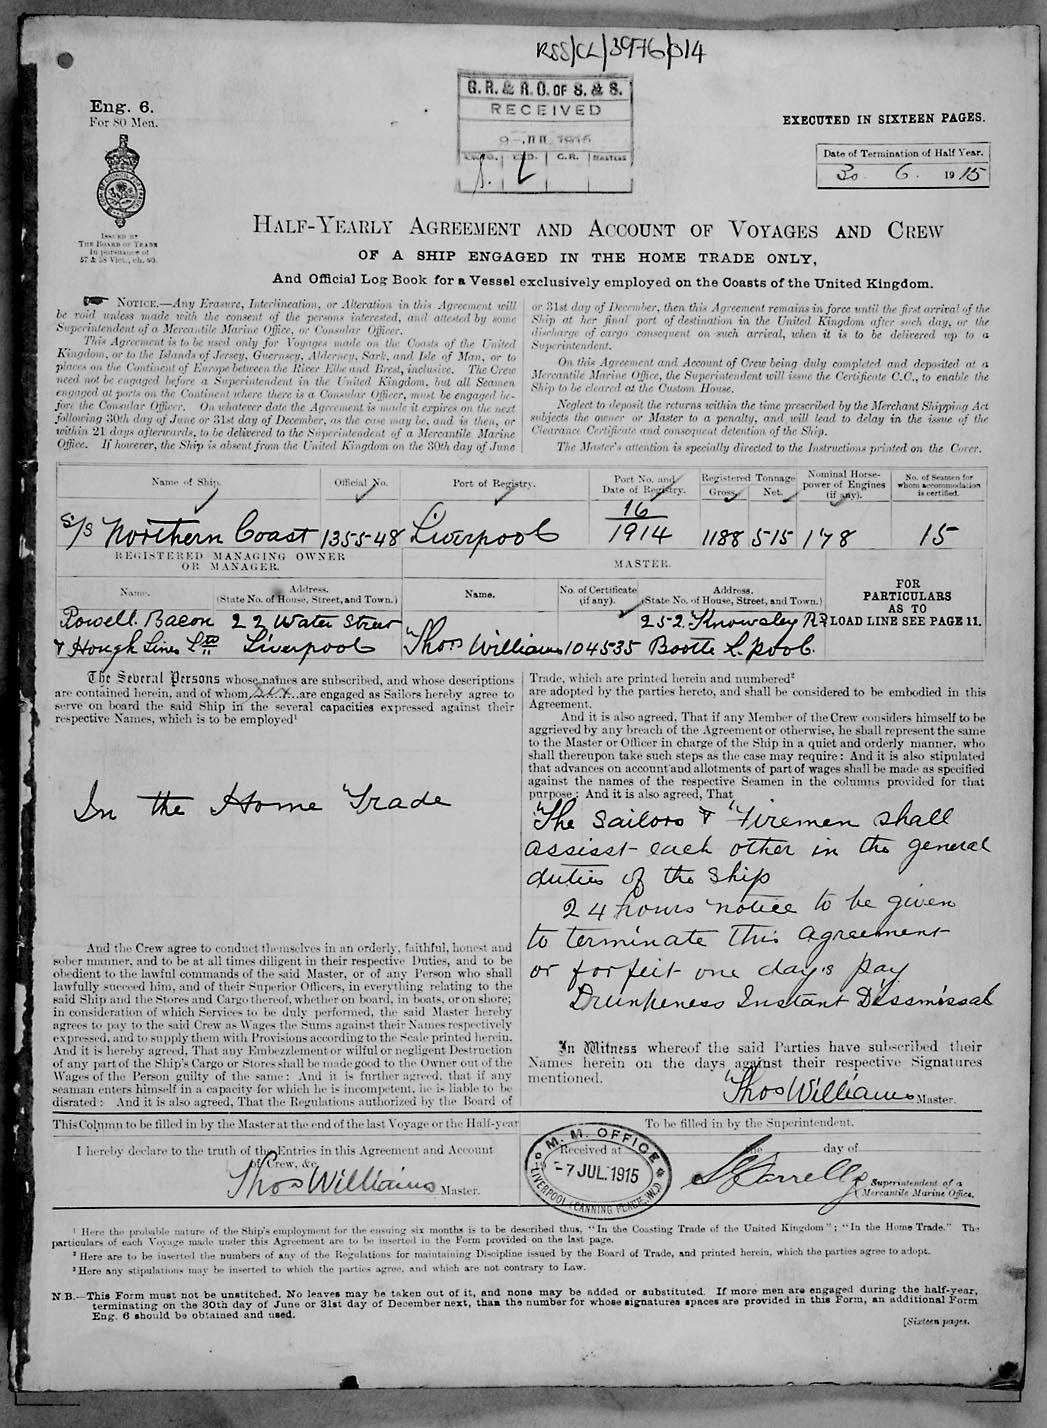 RSS/CL/3976/314
Eng. 6.
For 80 Men.
ISSUED BY
THE BOARD OF TRADE
In pursuance of
57 & 58 Vict., ch. 60.
G. R. & R. O. OF S. & S.
RECEIVED
9 - JUL 1915
C.R. | MASTERS
EXECUTED IN SIXTEEN PAGES.
Date of Termination of Half Year.
30. 6. 1915
HALF-YEARLY AGREEMENT AND ACCOUNT OF VOYAGES AND CREW
OF A SHIP ENGAGED IN THE HOME TRADE ONLY,
And Official Log Book for a Vessel exclusively employed on the Coasts of the United Kingdom.
NOTICE.—Any Erasure, Interlineation, or Alteration in this Agreement will
be void unless made with the consent of the persons interested, and attested by some
Superintendent of a Mercantile Marine Office, or Consular Officer.
This Agreement is to be used only for Voyages made on the Coasts of the United
Kingdom, or to the Islands of Jersey, Guernsey, Alderney, Sark, and Isle of Man, or to
places on the Continent of Europe between the River Elbe and Brest, inclusive. The Crew
need not be engaged before a Superintendent in the United Kingdom, but all Seamen
engaged at ports on the Continent where there is a Consular Officer, must be engaged be-
fore the Consular Officer. On whatever date the Agreement is made it expires on the next
following 30th day of June or 31st day of December, as the case may be, and is then, or
within 21 days afterwards, to be delivered to the Superintendent of a Mercantile Marine
Office. If however, the Ship is absent from the United Kingdom on the 30th day of June
or 31st day of December, then this Agreement remains in force until the first arrival of the
Ship at her final port of destination in the United Kingdom after such day, or the
discharge of cargo consequent on such arrival, when it is to be delivered up to a
Superintendent.
On this Agreement and Account of Crew being duly completed and deposited at a
Mercantile Marine Office, the Superintendent will issue the Certificate C.C., to enable the
Ship to be cleared at the Custom House.
Neglect to deposit the returns within the time prescribed by the Merchant Shipping Act
subjects the owner or Master to a penalty, and will lead to delay in the issue of the
Clearance Certificate and consequent detention of the Ship.
The Master's attention is specially directed to the Instructions printed on the Cover.
Name of Ship. | Official No. | Port of Registry. | Port No. and Date of Registry. | Registered Tonnage Gross. Net. | Nominal Horse-power of Engines (if any). | No. of Seamen for whom accommodation is certified.
S/S Northern Coast 135548 Liverpool 16/1914 1188 515 178 15
REGISTERED MANAGING OWNER
OR MANAGER.
MASTER.
Name. | Address. (State No. of House, Street, and Town.) | Name. | No. of Certificate (if any). | Address. (State No. of House, Street, and Town.)
FOR
PARTICULARS
AS TO
LOAD LINE SEE PAGE 11.
Powell. Bacon 22 Water Street 252 Knowsley Rd
& Hough Lines Ltd Liverpool Thos Williams 104535 Bootle L.pool.
The Several Persons whose names are subscribed, and whose descriptions
are contained herein, and of whom six are engaged as Sailors hereby agree to
serve on board the said Ship in the several capacities expressed against their
respective Names, which is to be employed¹
In the Home Trade
And the Crew agree to conduct themselves in an orderly, faithful, honest and
sober manner, and to be at all times diligent in their respective Duties, and to be
obedient to the lawful commands of the said Master, or of any Person who shall
lawfully succeed him, and of their Superior Officers, in everything relating to the
said Ship and the Stores and Cargo thereof, whether on board, in boats, or on shore;
in consideration of which Services to be duly performed, the said Master hereby
agrees to pay to the said Crew as Wages the Sums against their Names respectively
expressed, and to supply them with Provisions according to the Scale printed herein.
And it is hereby agreed, That any Embezzlement or wilful or negligent Destruction
of any part of the Ship's Cargo or Stores shall be made good to the Owner out of the
Wages of the Person guilty of the same: And it is further agreed, that if any
seaman enters himself in a capacity for which he is incompetent, he is liable to be
disrated: And it is also agreed, That the Regulations authorized by the Board of
Trade, which are printed herein and numbered²
are adopted by the parties hereto, and shall be considered to be embodied in this
Agreement.
And it is also agreed, That if any Member of the Crew considers himself to be
aggrieved by any breach of the Agreement or otherwise, he shall represent the same
to the Master or Officer in charge of the Ship in a quiet and orderly manner, who
shall thereupon take such steps as the case may require: And it is also stipulated
that advances on account and allotments of part of wages shall be made as specified
against the names of the respective Seamen in the columns provided for that
purpose: And it is also agreed, That
The Sailors & Firemen shall
assisst each other in the general
duties of the ship
24 hours notice to be given
to terminate this agreement
or forfeit one day's pay
Drunkeness Instant Dissmissal
In Witness whereof the said Parties have subscribed their
Names herein on the days against their respective Signatures
mentioned.
Thos Williams Master.
This Column to be filled in by the Master at the end of the last Voyage or the Half-year
I hereby declare to the truth of the Entries in this Agreement and Account
of Crew, &c.
Thos Williams Master.
To be filled in by the Superintendent.
Received at the day of
M. M. OFFICE
-7 JUL 1915
LIVERPOOL (CANNING PLACE, W.D.)
Superintendent of a
Mercantile Marine Office.
¹ Here the probable nature of the Ship's employment for the ensuing six months is to be described thus, "In the Coasting Trade of the United Kingdom"; "In the Home Trade." The
particulars of each Voyage made under this Agreement are to be inserted in the Form provided on the last page.
² Here are to be inserted the numbers of any of the Regulations for maintaining Discipline issued by the Board of Trade, and printed herein, which the parties agree to adopt.
³ Here any stipulations may be inserted to which the parties agree, and which are not contrary to Law.
N.B.—This Form must not be unstitched. No leaves may be taken out of it, and none may be added or substituted. If more men are engaged during the half-year,
terminating on the 30th day of June or 31st day of December next, than the number for whose signatures spaces are provided in this Form, an additional Form
Eng. 6 should be obtained and used.
[Sixteen pages.